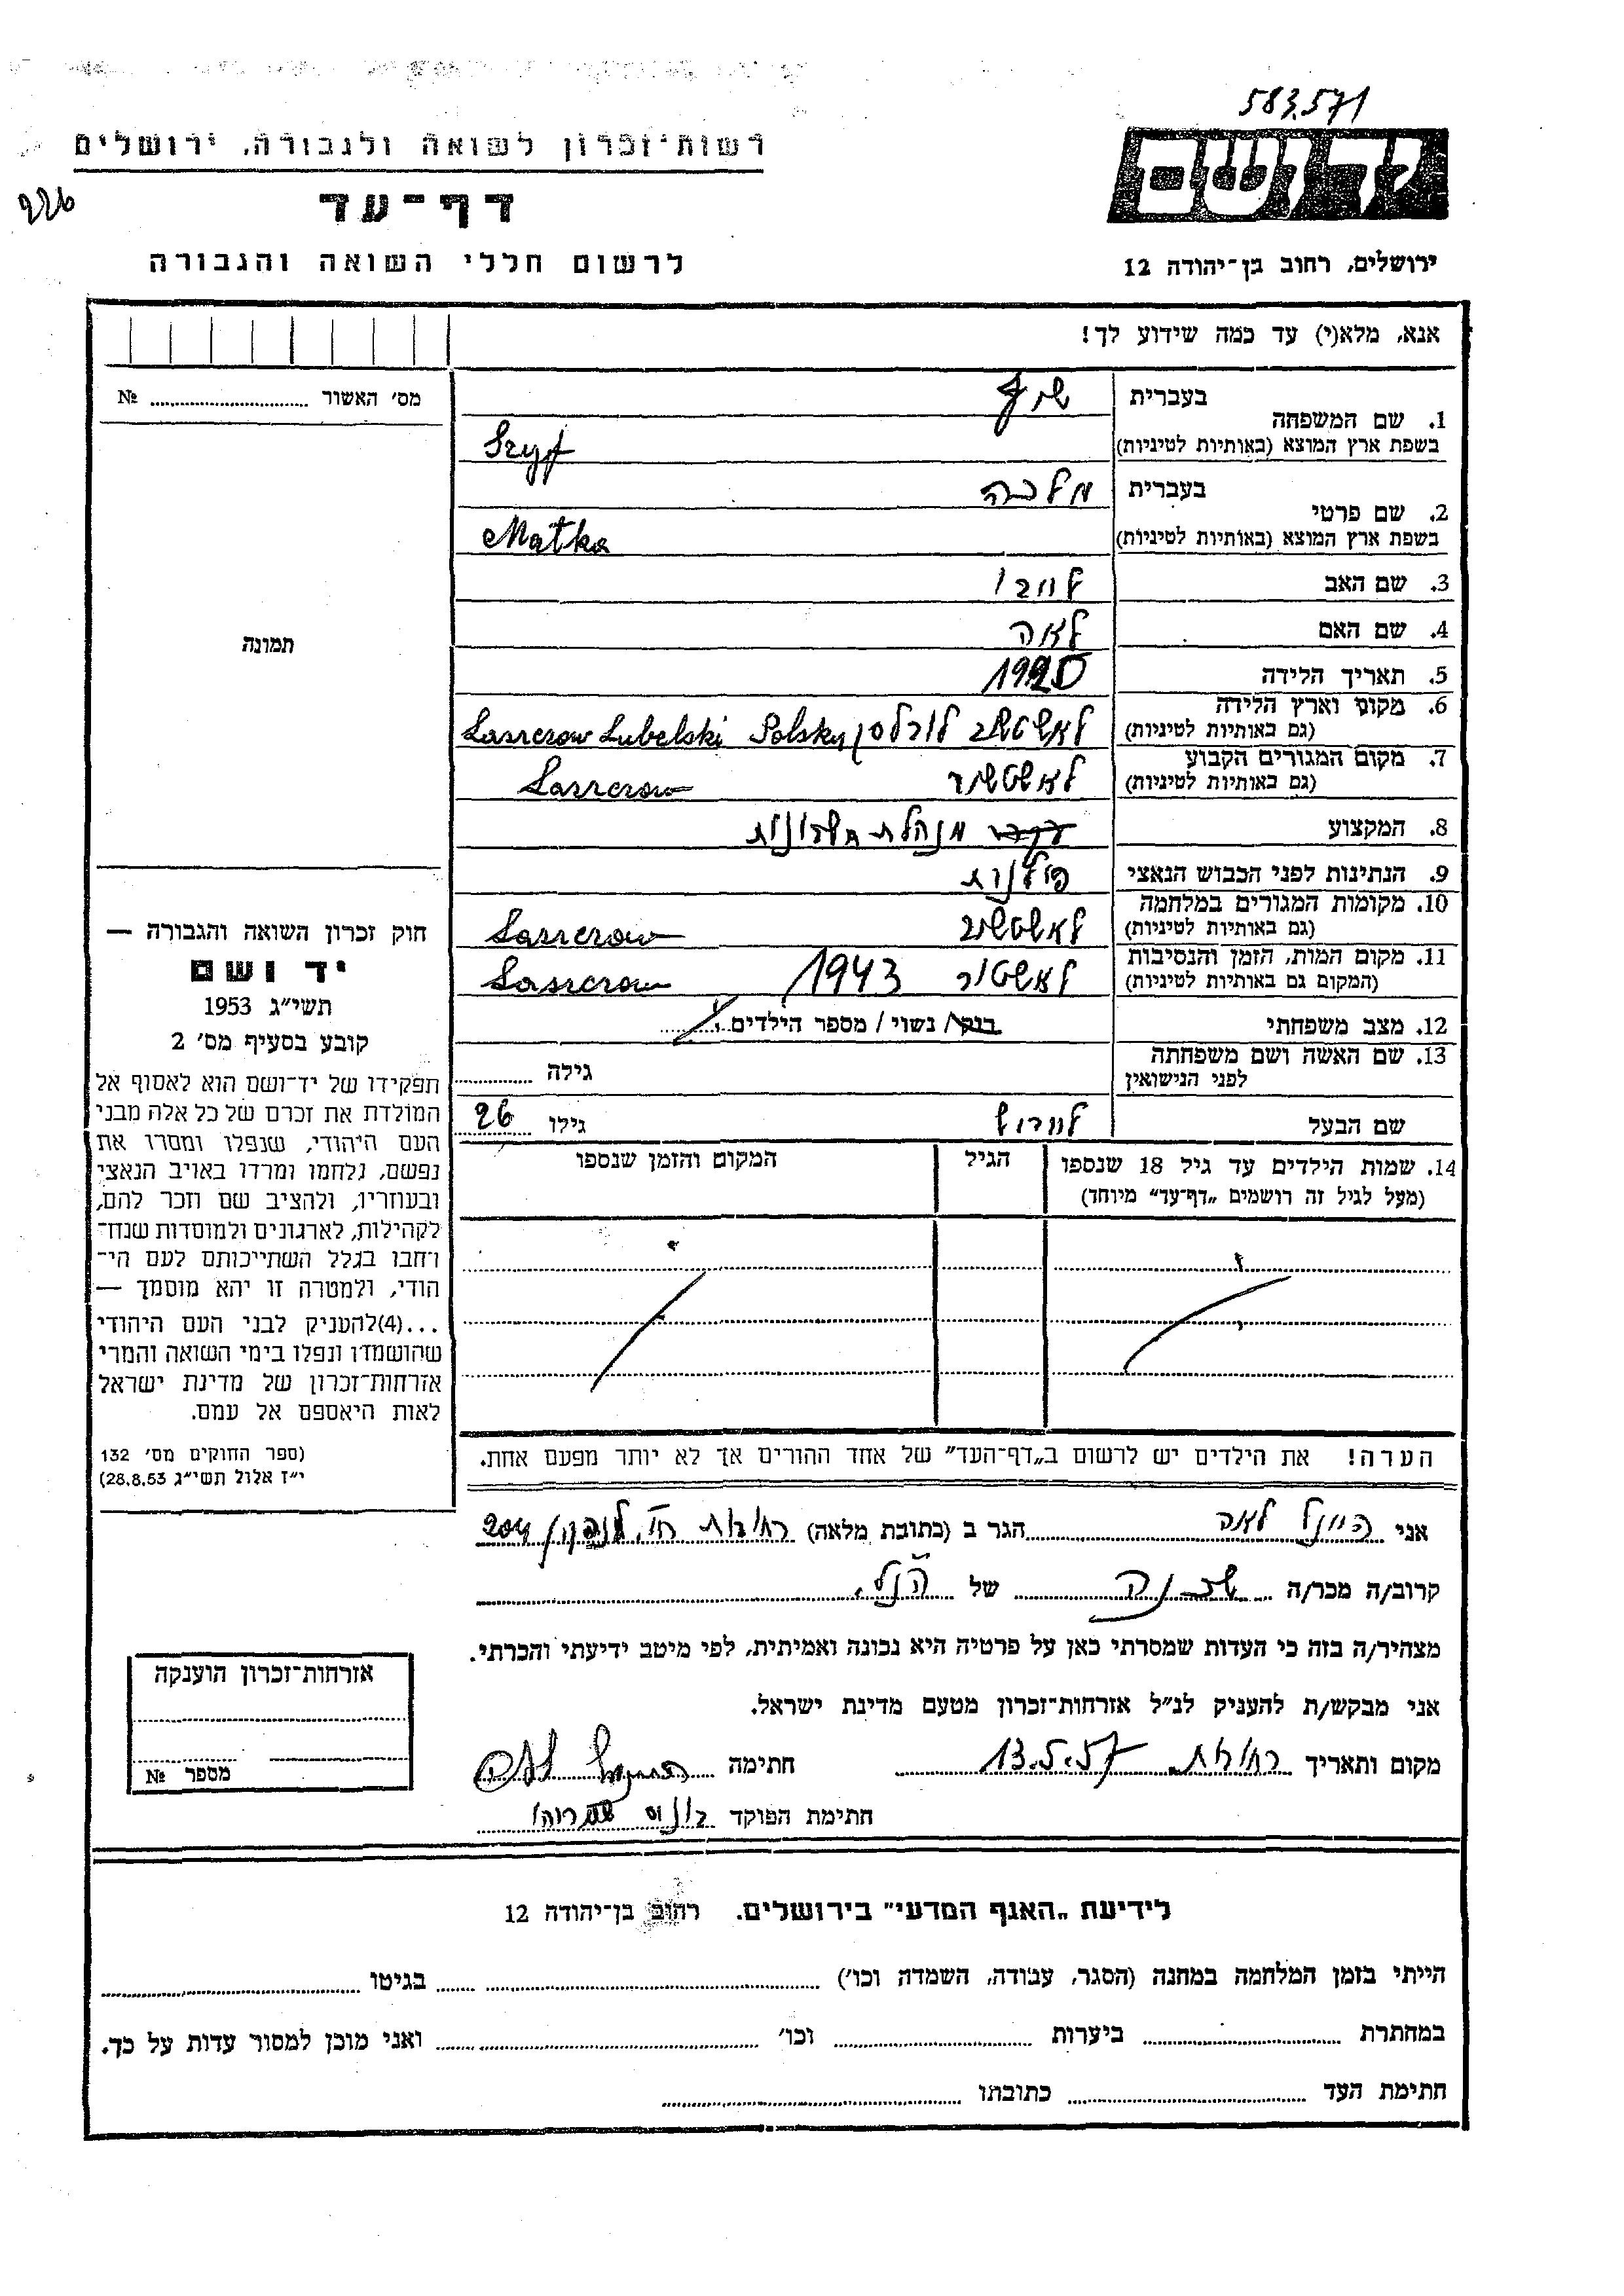 583.571
רשות־זכרון לשואה ולגבורה, ירושלים
יד ושם
226
דף־עד
לרשום חללי השואה והגבורה
ירושלים, רחוב בן־יהודה 12
אנא, מלא(י) עד כמה שידוע לך!
מס׳ האשור № ........
1. שם המשפחה
בעברית שיף
בשפת ארץ המוצא (באותיות לטיניות) Szyf
2. שם פרטי
בעברית מלכה
בשפת ארץ המוצא (באותיות לטיניות) Matka
3. שם האב
4. שם האם לאה
5. תאריך הלידה 1920
6. מקום וארץ הלידה
(גם באותיות לטיניות) Laszczow Lubelski Polsky
7. מקום המגורים הקבוע
(גם באותיות לטיניות) לאשטשוב Laszczow
8. המקצוע מנהלת חשבונות
9. הנתינות לפני הכבוש הנאצי פולנית
10. מקומות המגורים במלחמה
(גם באותיות לטיניות) לאשטשוב Laszczow
11. מקום המות, הזמן והנסיבות
(המקום גם באותיות לטיניות) 1943 Laszczow
12. מצב משפחתי רווק / נשוי / מספר הילדים
13. שם האשה ושם משפחתה
לפני הנישואין
גילה ........
שם הבעל
גילו 26
14. שמות הילדים עד גיל 18 שנספו
(מעל לגיל זה רושמים „דף־עד” מיוחד)
הגיל
המקום והזמן שנספו
תמונה
חוק זכרון השואה והגבורה —
יד ושם
תשי״ג 1953
קובע בסעיף מס׳ 2
תפקידו של יד־ושם הוא לאסוף אל
המולדת את זכרם של כל אלה מבני
העם היהודי, שנפלו ומסרו את
נפשם, נלחמו ומרדו באויב הנאצי
ובעוזריו, ולהציב שם וזכר להם,
לקהילות, לארגונים ולמוסדות שנח־
רבו בגלל השתייכותם לעם הי־
הודי, ולמטרה זו יהא מוסמך —
...(4)להעניק לבני העם היהודי
שהושמדו ונפלו בימי השואה והמרי
אזרחות־זכרון של מדינת ישראל
לאות היאספם אל עמם.
(ספר החוקים מס׳ 132
י״ז אלול תשי״ג 28.8.53)
הערה! את הילדים יש לרשום ב„דף־העד” של אחד ההורים אך לא יותר מפעם אחת.
אני היונל לאה הגר ב (כתובת מלאה) רחובות 204
קרוב/ה מכר/ה שכנה של הנ״ל
מצהיר/ה בזה כי העדות שמסרתי כאן על פרטיה היא נכונה ואמיתית, לפי מיטב ידיעתי והכרתי.
אני מבקש/ת להעניק לנ״ל אזרחות־זכרון מטעם מדינת ישראל.
מקום ותאריך רחובות 13.5.57 חתימה לאה
חתימת הפוקד
אזרחות־זכרון הוענקה
מספר №
לידיעת „האגף המדעי” בירושלים. רחוב בן־יהודה 12
הייתי בזמן המלחמה במחנה (הסגר, עבודה, השמדה וכו׳) ........ בגיטו ........
במחתרת ........ ביערות ........ וכו׳ ........ ואני מוכן למסור עדות על כך.
חתימת העד ........ כתובתו ........